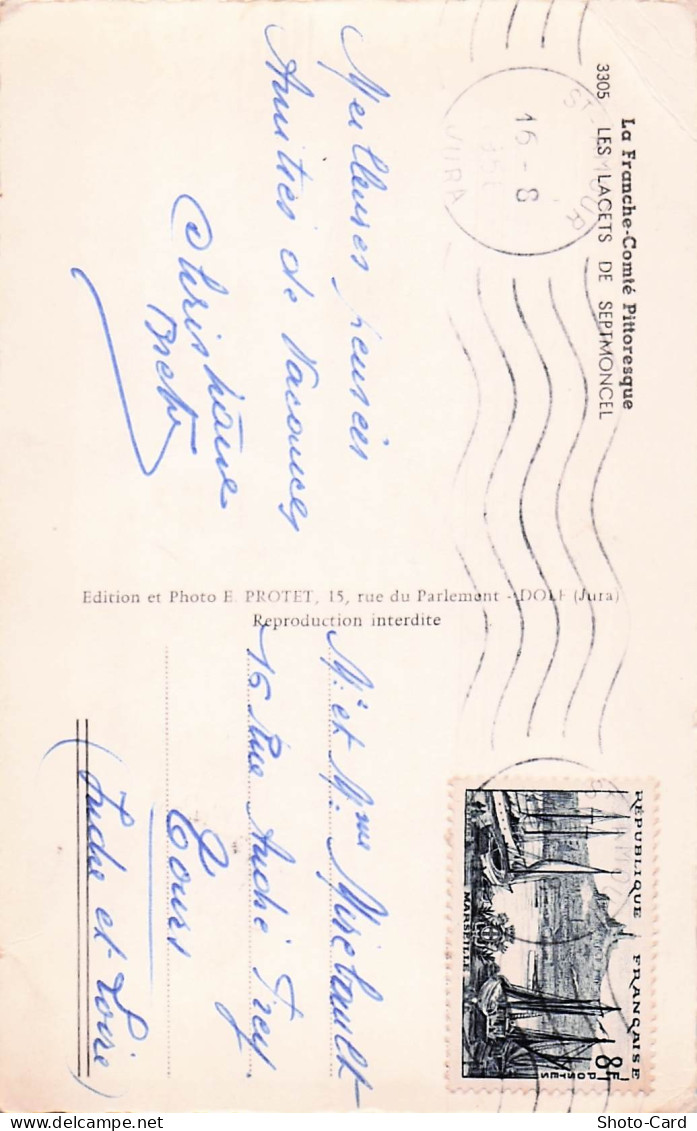 La Franche-Comté Pittoresque
3305 LES LACETS DE SEPTMONCEL
ST-AMOUR
16-8
JURA
Meilleures pensées
Amitiés de Vacances
Christiane
Edition et Photo E. PROTET, 15, rue du Parlement - DOLE (Jura)
Reproduction interdite
RÉPUBLIQUE FRANÇAISE
8F
POSTES
MARSEILLE
Mr et Mme
16 Rue André
Tours
(Indre et Loire)
© Shoto-Card